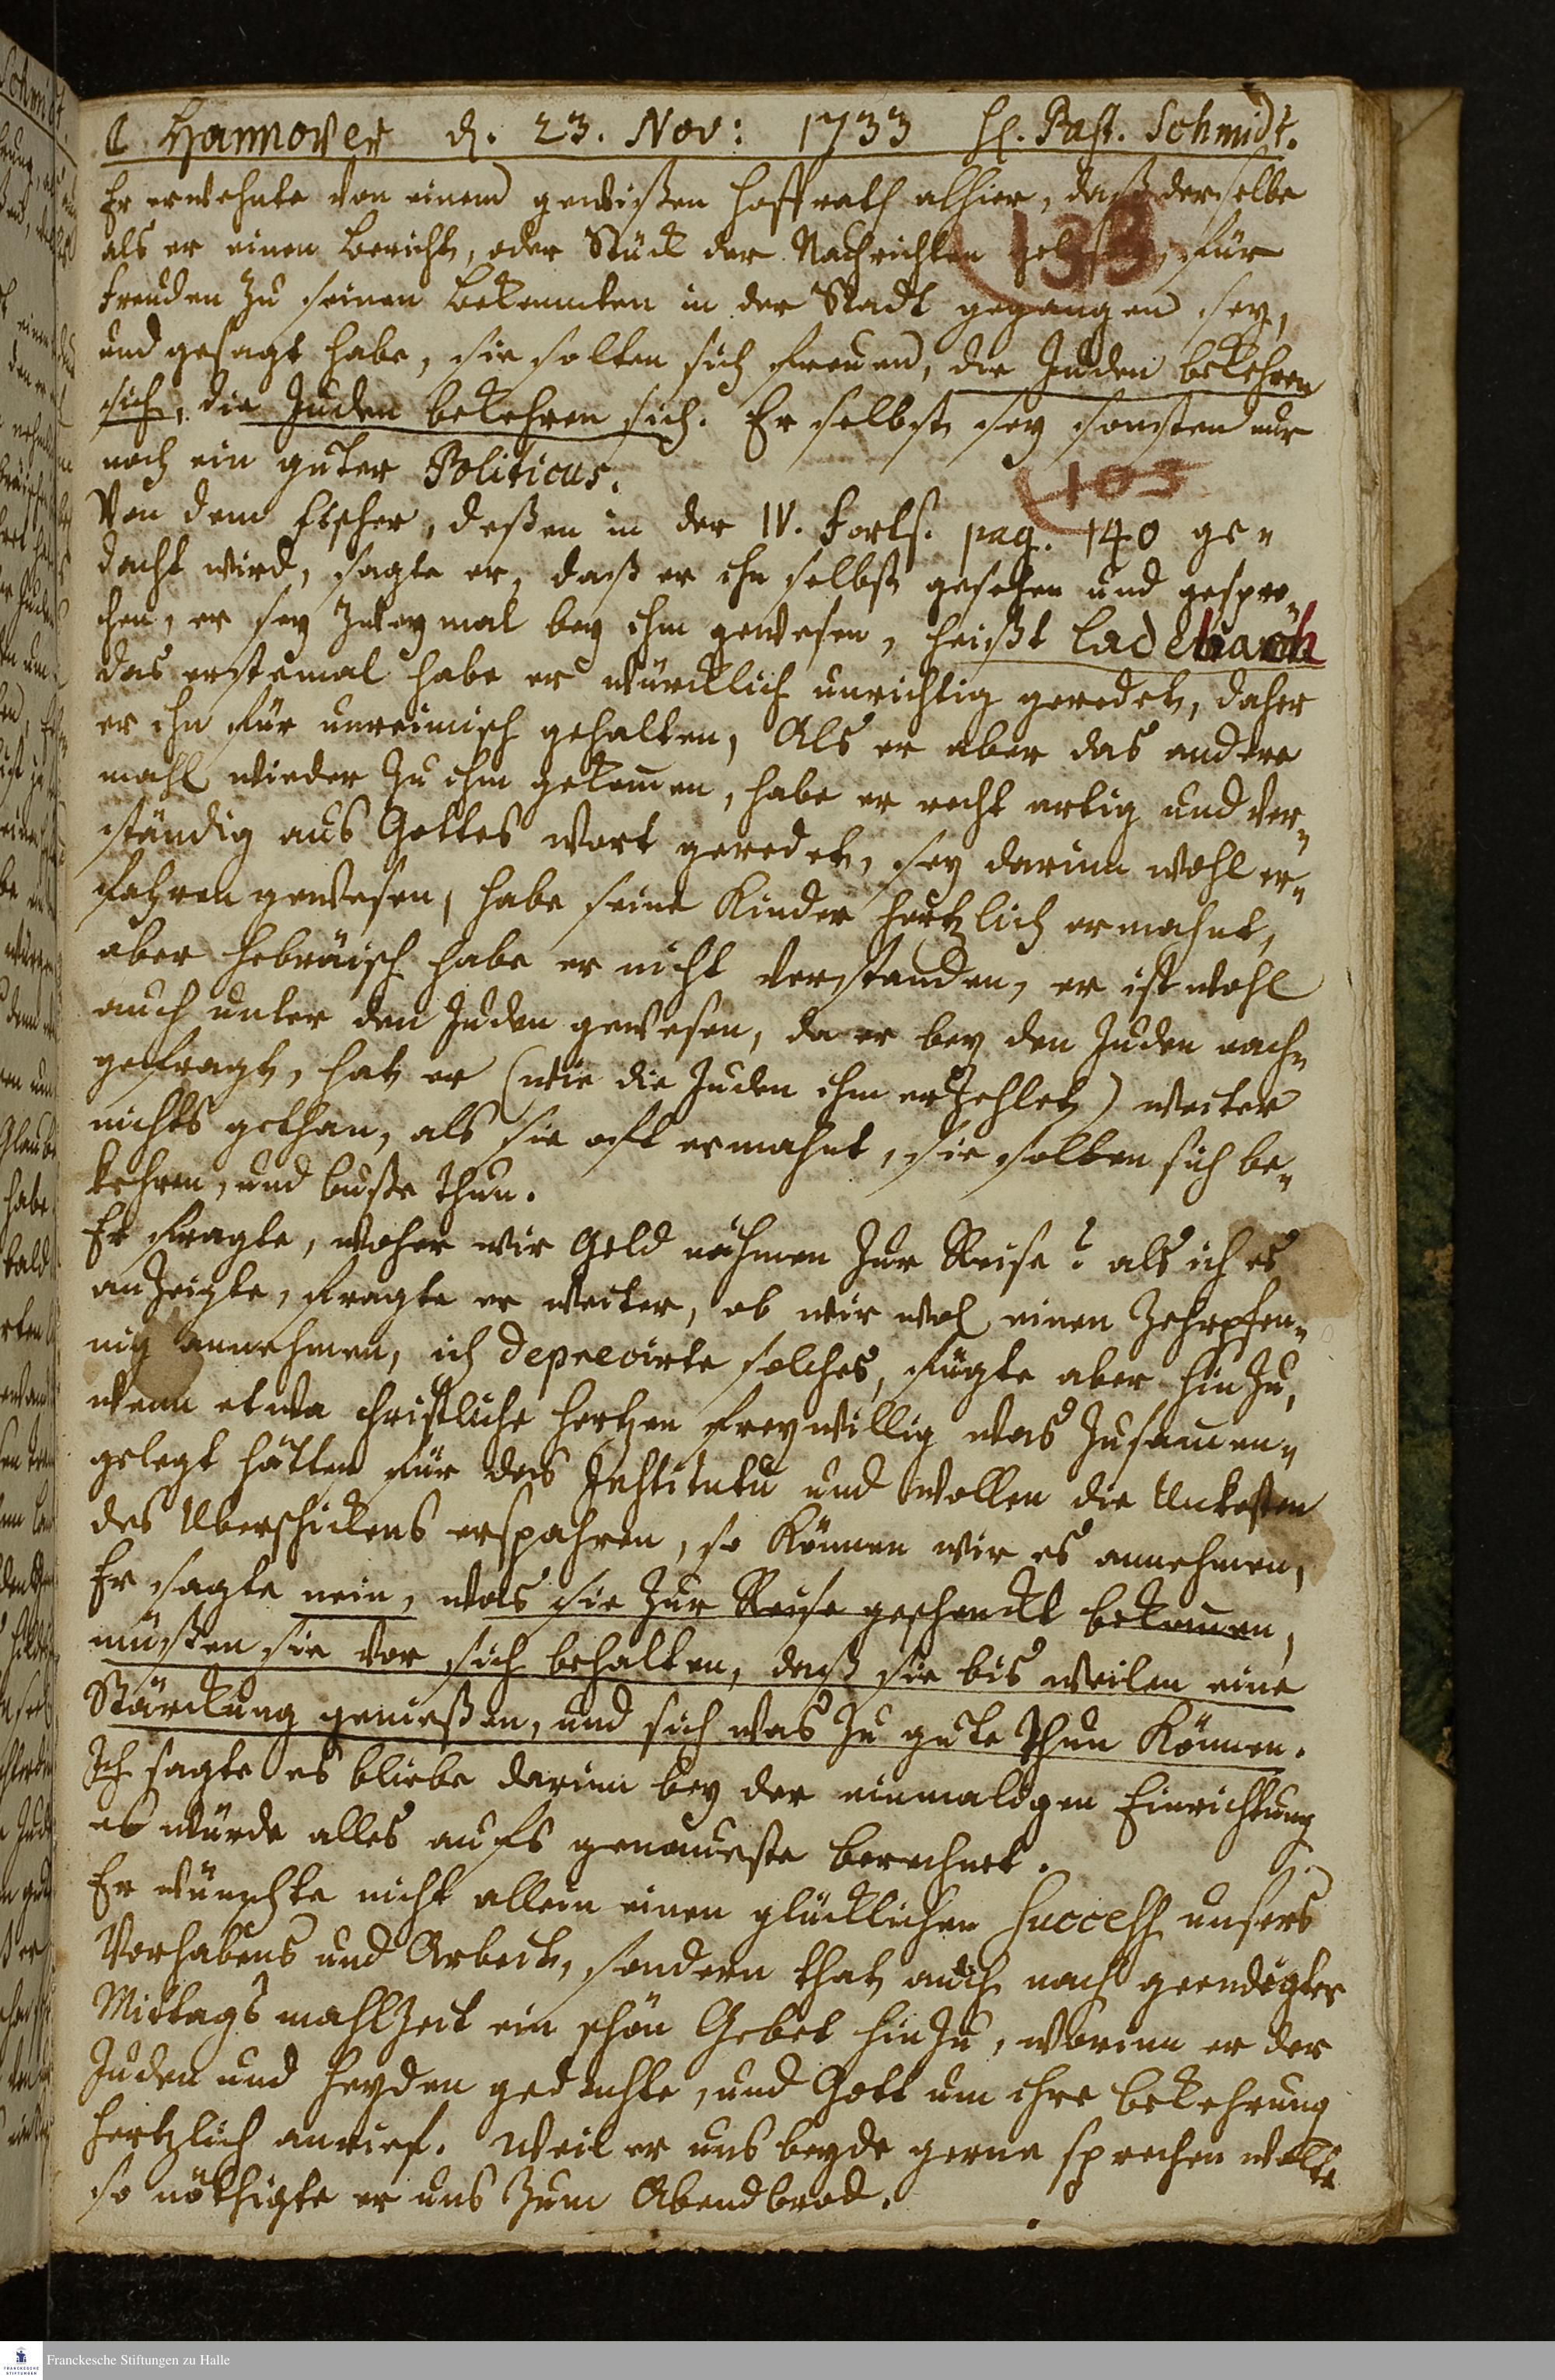 a Hannover d. 23. Nov: 1733 H. Past. Schmidt.
133
Er erwehnte von einem gewißen Hoffrath alhier, daß derselbe
als er einen Bericht, oder Stück der Nachrichten gelesen, für
Freuden zu seinen Bekannten in der Stadt gegangen sey,
und gesagt habe, sie solten sich freuen, die Juden bekehren
sich, die Juden bekehren sich. Er selbst sey sonsten nur
noch ein guter Politicus.
103
Von dem Escher, deßen in der IV. Forts. pag. 140 ge-
dacht wird, sagte er, daß er ihn selbst gesehen und gespro-
chen, er sey zweymal bey ihm gewesen, heißt Lade
das erstemal habe er würcklich unrichtig geredet, daher
er ihn für unreimisch gehalten, Als er aber das andere
mahl wieder zu ihm gekom̄en, habe er recht artig und ver-
ständig aus Gottes wort geredet, sey darinn wohl er-
fahren gewesen, habe seine Kinder hertzlich ermahnt,
aber Hebräisch habe er nicht verstanden, er ist wohl
auch unter den Juden gewesen, da er bey den Juden nach-
gefragt, hat er (wie die Juden ihm erzehlet) weiter
nichts gethan, als sie oft ermahnt, sie solten sich be-
kehren, und buße thun.
Er fragte, woher wir Geld nähmen zur Reise? als ich es
anzeigte, fragte er weiter, ob wir wol einen Zehrpfen-
nig annehmen, ich deprecirte solches, fügte aber hinzu,
wenn etwa christliche Hertzen freywillig was zusam̄en-
gelegt hätten für das Institutu und wollen die Unkosten
des Uberschickens erspahren, so können wir es annehmen,
Er sagte nein, was sie zur Reise geschenckt bekom̄en,
müßen sie vor sich behalten, daß sie bis weilen eine
Stärckung genießen, und sich was zu gute thun können.
Ich sagte es bliebe darinn bey der einmaligen Einrichtung
es würde alles aufs genaueste berechnet.
Er wünschte nicht allein einen glücklichen Success unsers
Vorhabens und Arbeit, sondern that auch nach geendigter
Mittags mahlzeit ein schön Gebet hinzu, worinn er der
Juden und Heyden gedachte, und Gott um ihre bekehrung
hertzlich anrief. Weil er uns beyde gerne sprechen wolte
so nöthigte er uns zum Abendbrod.
FRANCKESCHE STIFTUNGEN
Franckesche Stiftungen zu Halle